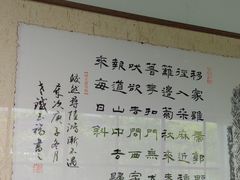 移家雖帶郭野
徑入桑麻近種
籬邊菊秋來未
著花扣門無犬
吠欲去問西家
報道山中去歸
來每日斜
皎然尋陸鴻漸不遇
歲次庚子冬月